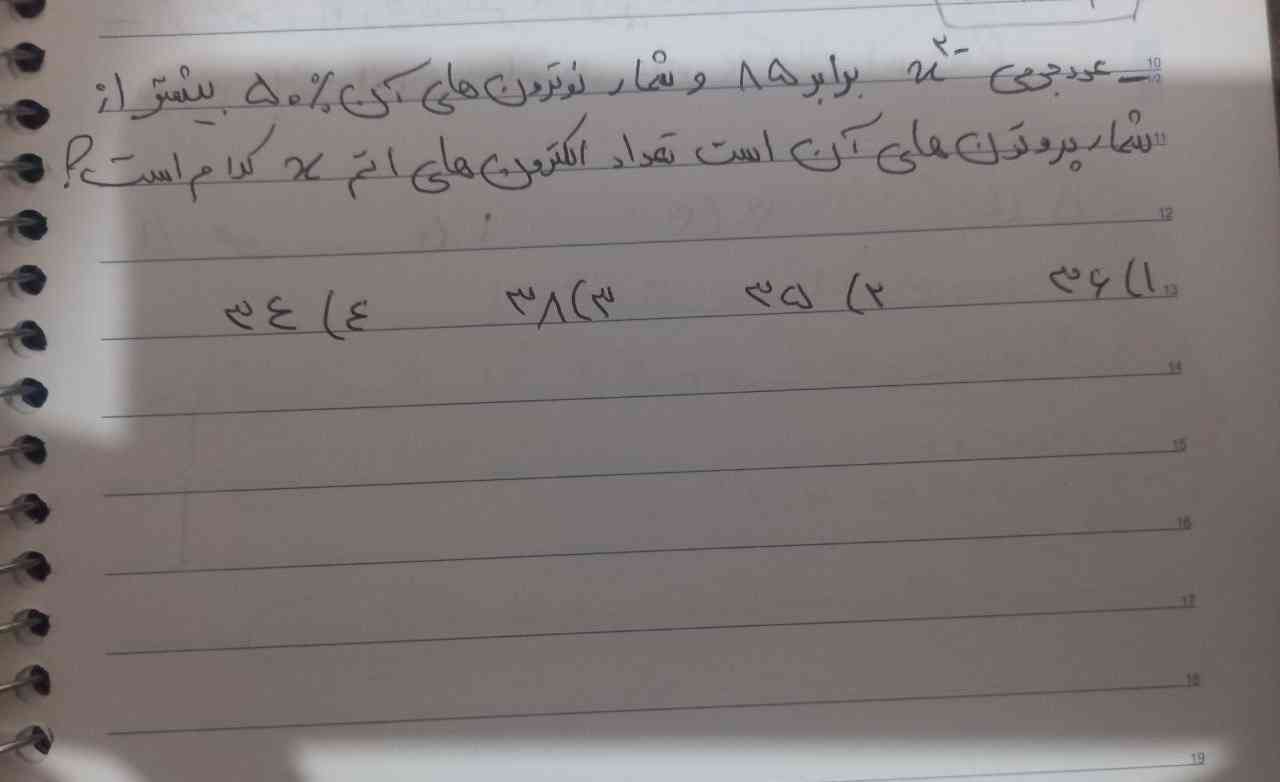 10
ـ عدد جرمی x²⁻ برابر ۸۵ و شمار نوترون های آن ۵۰٪ بیشتر از
11 شمار پروتون های آن است تعداد الکترون های اتم x کدام است؟
12
13 ۱) ۳۶ ۲) ۳۵ ۳) ۳۸ ٤) ۳٤
14
15
16
17
18
19